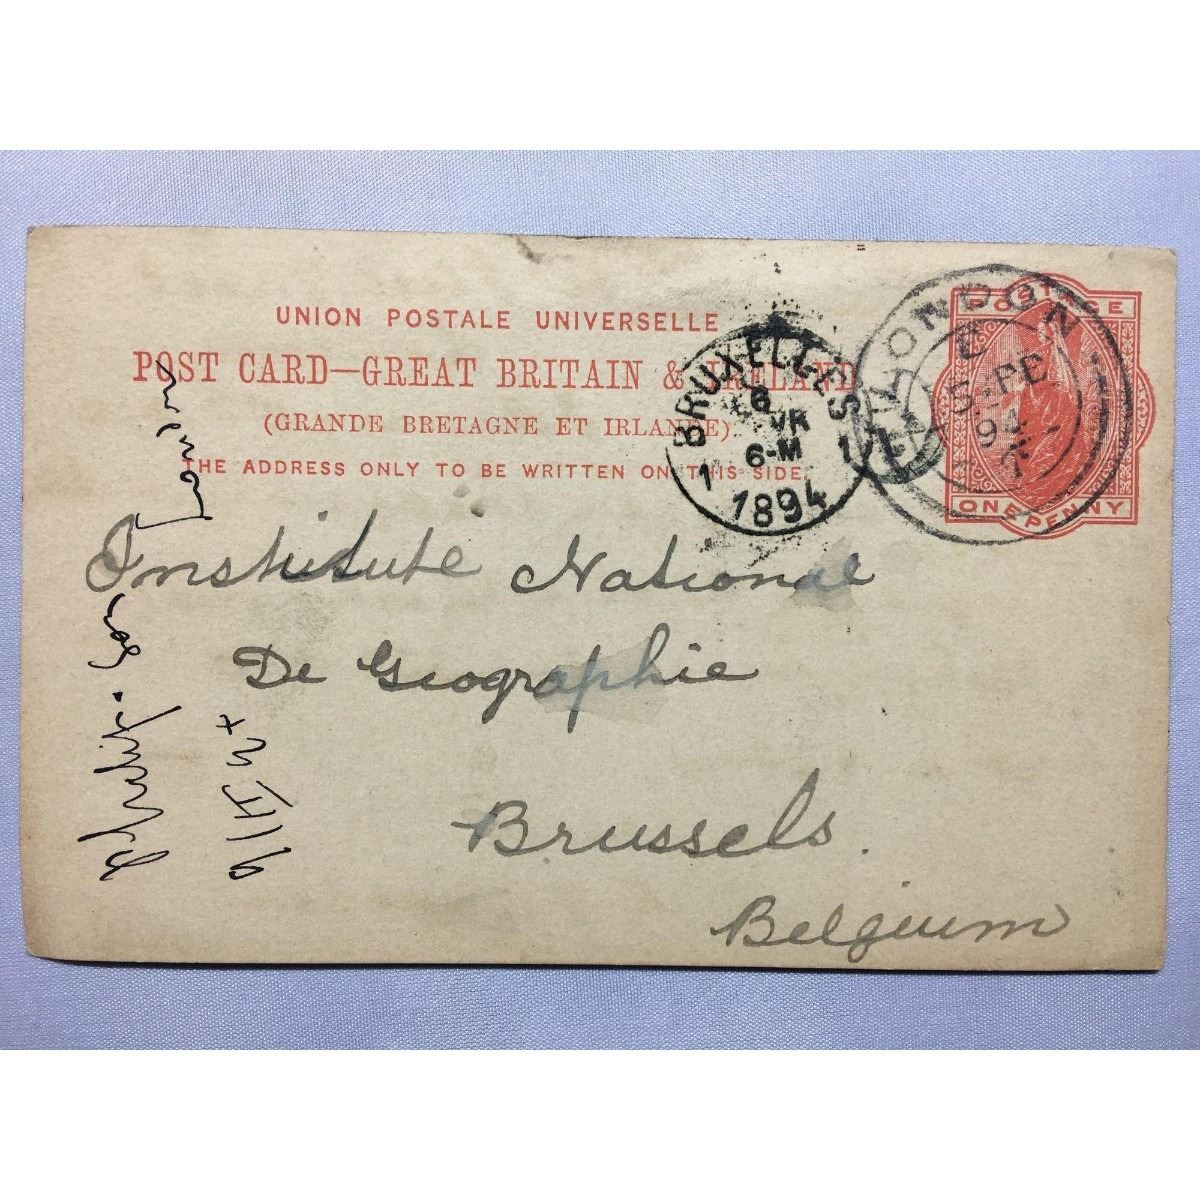 UNION POSTALE UNIVERSELLE
POST CARD—GREAT BRITAIN & IRELAND
(GRANDE BRETAGNE ET IRLANDE)
THE ADDRESS ONLY TO BE WRITTEN ON THIS SIDE.
POSTAGE
ONE PENNY
LONDON
E
FE
94
BRUXELLES
6
VR
6-M
1 1
1894
Institute National
De Geographie
Brussels.
Belgium
Philip. Son
London